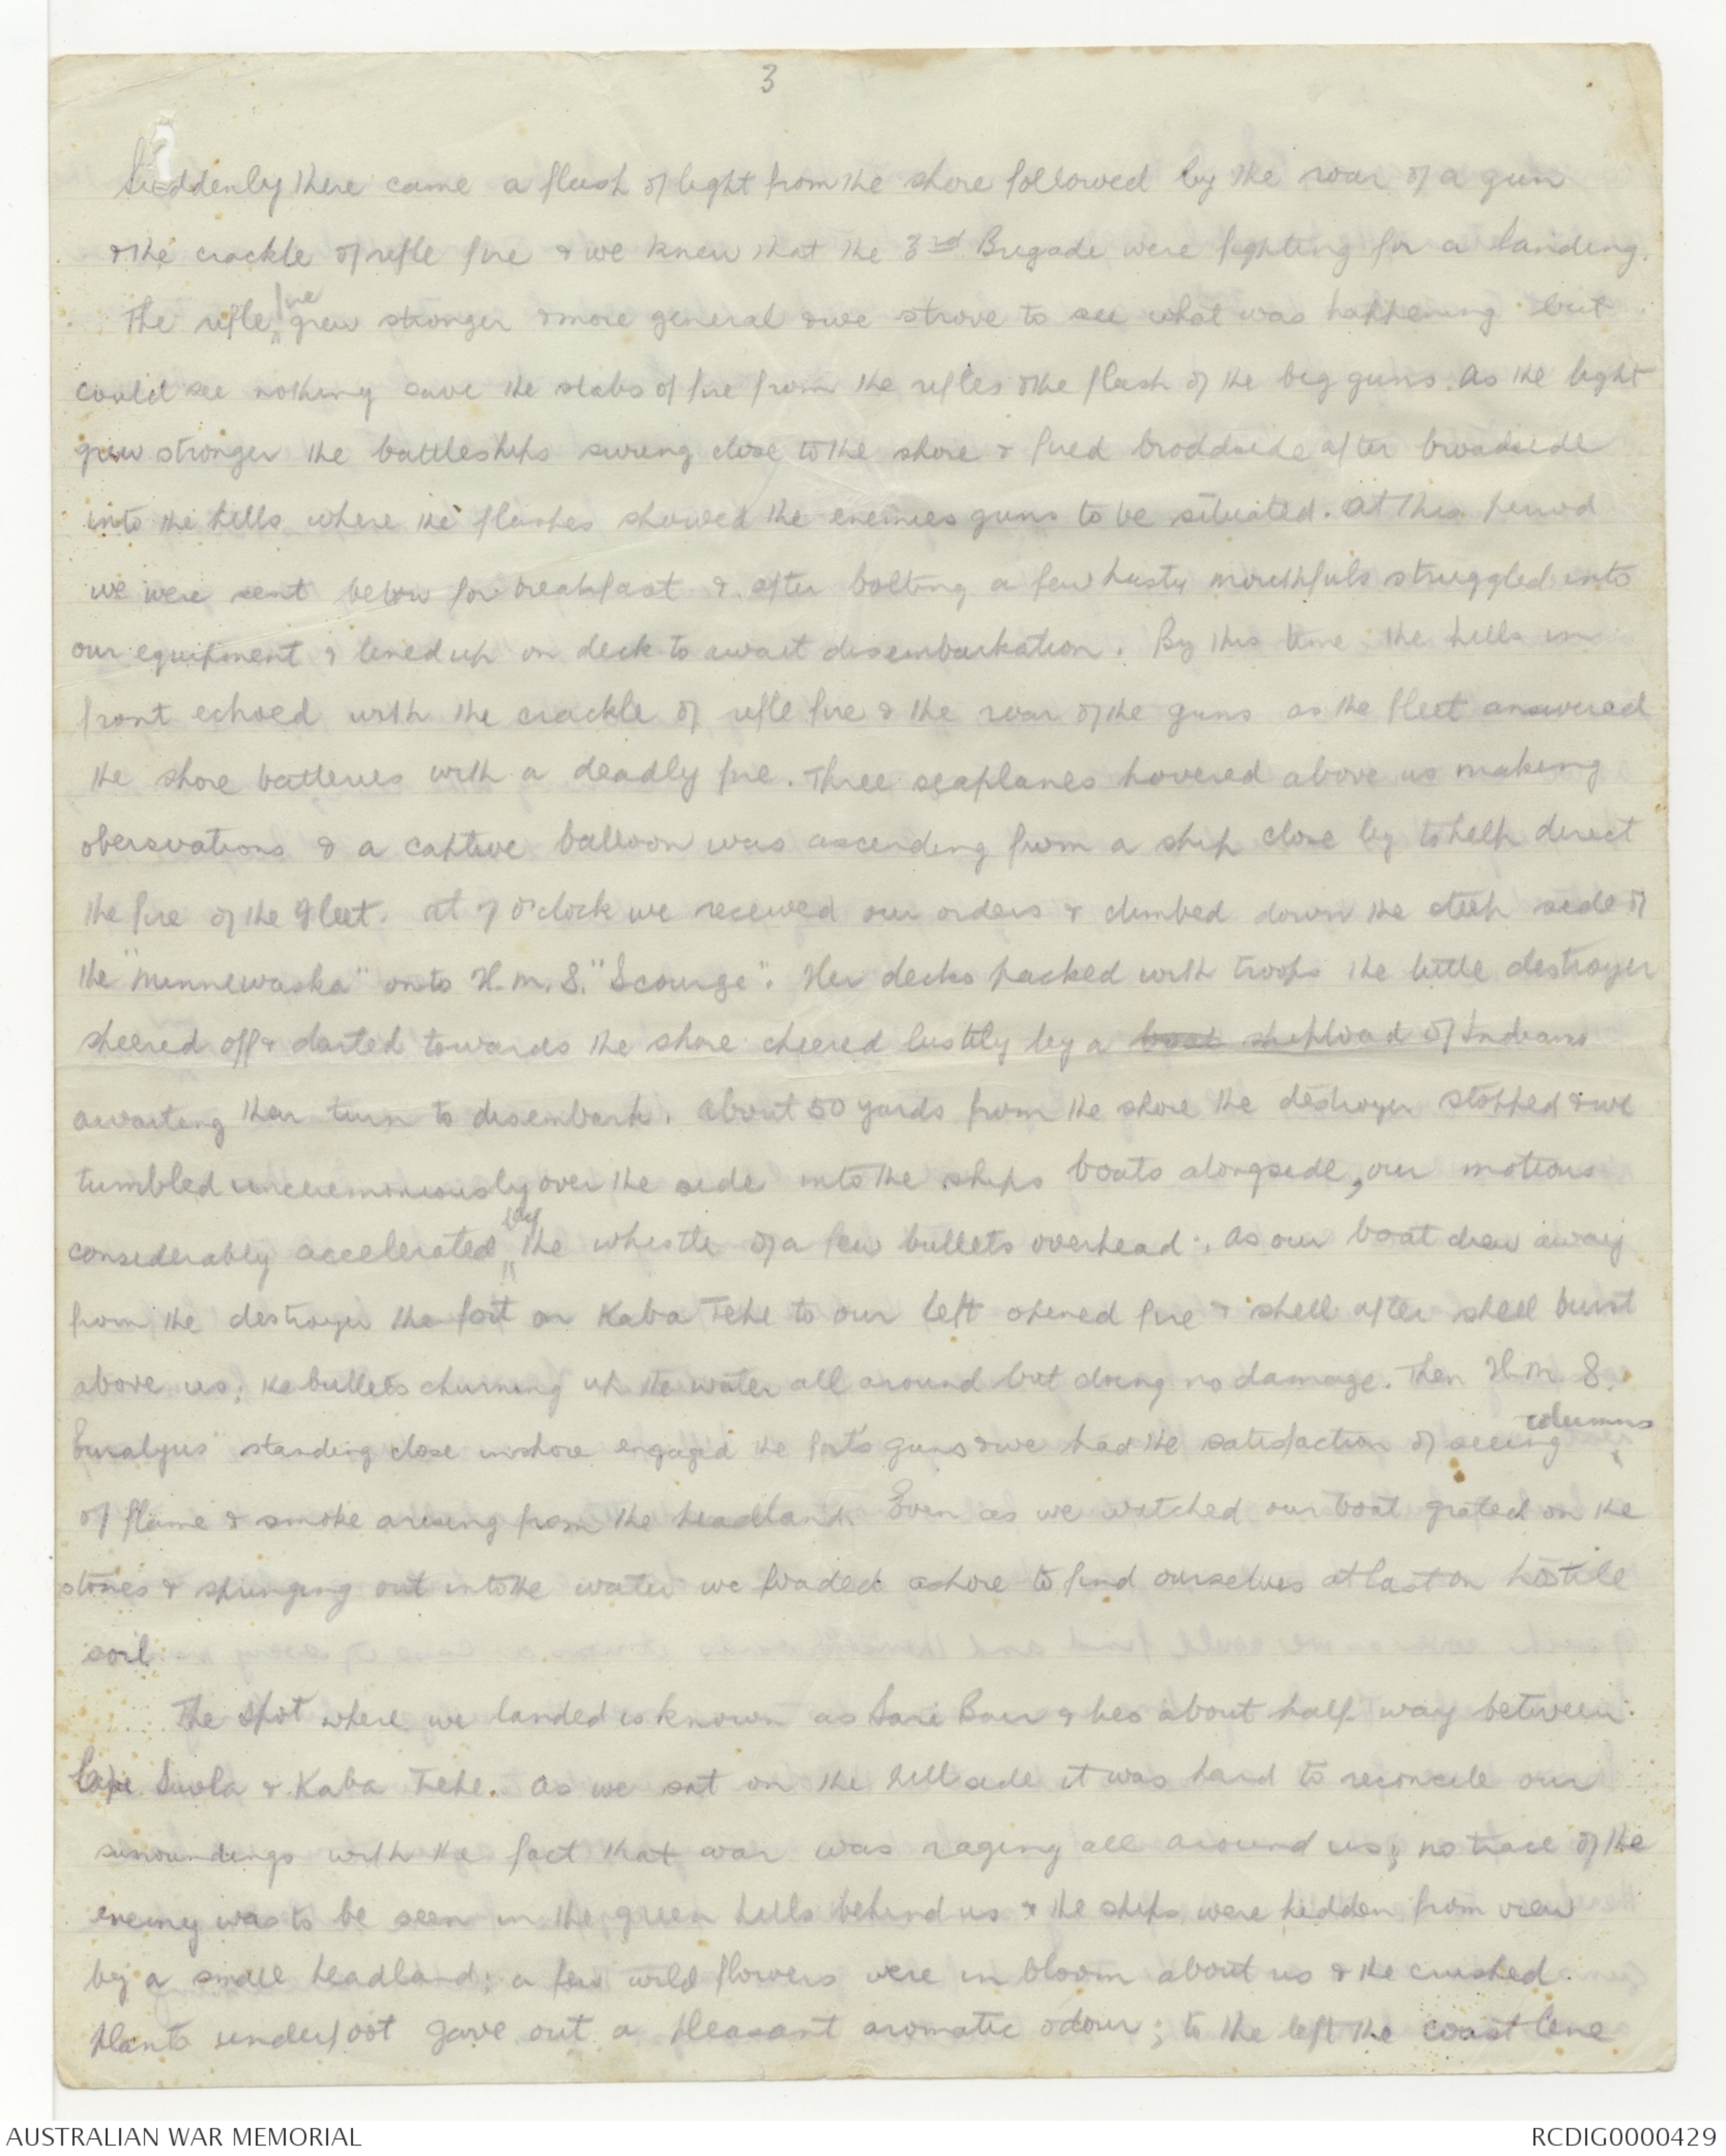 3
Suddenly there came a flash of light from the shore followed by the roar of a gun
& the crackle of rifle fire & we knew that the 3rd Brigade were fighting for a landing.
The rifle fire grew stronger & more general & we strove to see what was happening but
could see nothing save the stabs of fire from the rifles & the flash of the big guns. As the light
grew stronger the battleships swung close to the shore & fired broddside after broadside
into the hills where the flashes showed the enemies guns to be situated. At this period
we were sent below for breakfast & after bolting a few hasty mouthfuls struggled into
our equipment & lined up on deck to await disembarkation. By this time the hills in
front echoed with the crackle of rifle fire & the roar of the guns as the fleet answered
the shore batteries with a deadly fire. Three seaplanes hovered above us making
obersvations & a captive balloon was ascending from a ship close by to help direct
the fire of the fleet. At 7 o'clock we received our orders & climbed down the steep side of
the "Minnewaska" onto H.M.S. "Scourge". Her decks packed with troops the little destroyer
sheered off & darted towards the shore cheered lustily by a boat shipload of Indians
awaiting their turn to disembark. About 50 yards from the shore the destroyer stopped & we
tumbled unceremoniously over the side into the ships boats alongside, our motions
considerably accelerated by the whistle of a few bullets overhead. As our boat drew away
from the destroyer the fort on Kaba Tehe to our left opened fire & shell after shell burst
above us; the bullets churning up the water all around but doing no damage. Then H.M.S.
Euralyus standing close inshore engaged the fort's guns & we had the satisfaction of seeing columns
of flame & smoke arising from the headland. Even as we watched our boat grated on the
stones & springing out into the water we waded ashore to find ourselves at last on hostile
soil.
The spot where we landed is known as Sari Bair & lies about half way between
Cape Suvla & Kaba Tehe. As we sat on the hillside it was hard to reconcile our
surroundings with the fact that war was raging all around us; no trace of the
enemy was to be seen in the green hills behind us & the ships were hidden from view
by a small headland; a few wild flowers were in bloom about us & the crushed
plants underfoot gave out a pleasant aromatic odour; to the left the coast line
AUSTRALIAN WAR MEMORIAL
RCDIG0000429